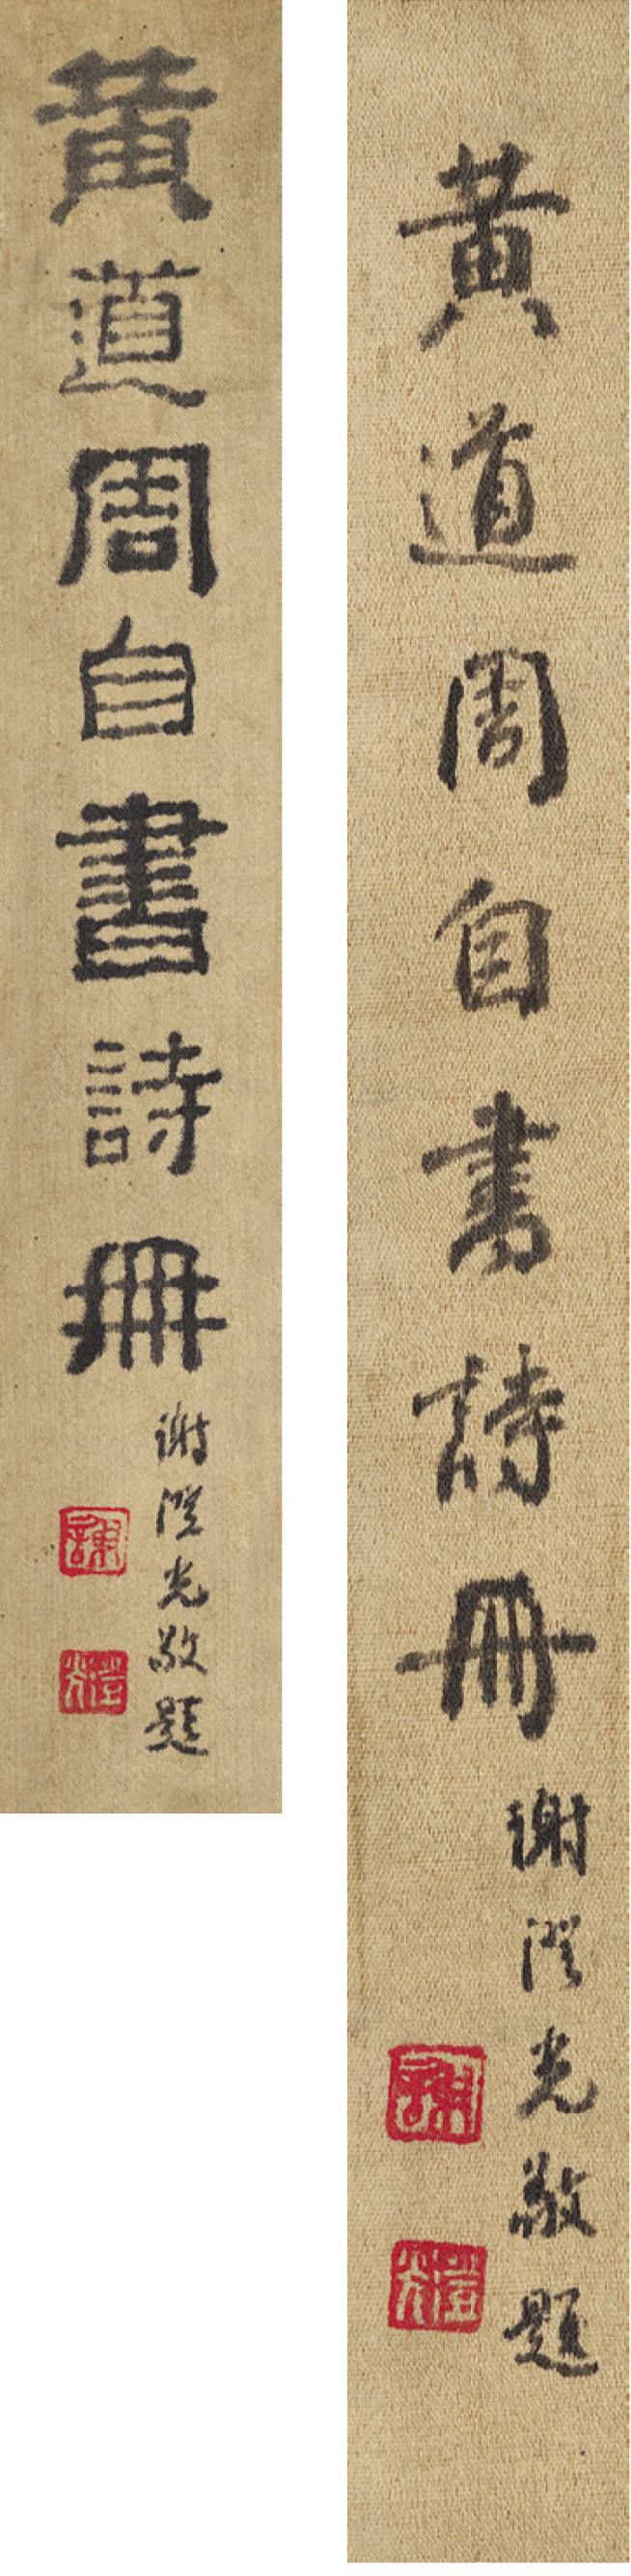 黄道周自書詩冊
謝澄光敬題
謝
澄光
黄道周自書詩冊
謝澄光敬題
謝
澄光